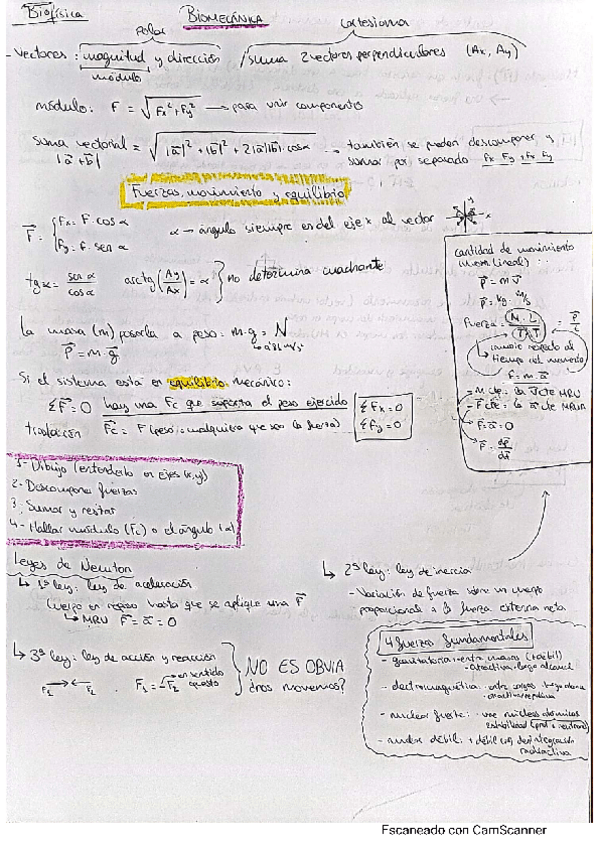 Biofísica
BIOMECÁNICA
polar
cartesiana
- Vectores: magnitud y dirección / suma 2 vectores perpendiculares (Ax, Ay)
módulo
módulo: F = √Fx² + Fy² → para unir componentes
suma vectorial = √|a|² + |b|² + 2|a||b| · cos α → también se pueden descomponer y
|a⃗ + b⃗|
sumar por separado
Fuerzas, movimiento y equilibrio
F⃗ = { Fx = F · cos α
Fy = F · sen α
α → ángulo siempre en del eje x al vector
tg α = sen α / cos α
arctg (Ay / Ax) = α } No determina cuadrante
La masa (m) posarla a peso: m·g = N
P⃗ = m · g⃗
- Si el sistema esta en equilibrio mecánico:
ΣF⃗ = 0 hay una Fc que soporta el peso ejercido
ΣFx = 0
ΣFy = 0
traslación
Fc = F (peso o cualquiera que sea la fuerza)
1- Dibujo (entenderlo en ejes (x,y)
2- Descomponer fuerzas
3. Sumar y restar
4- Hallar módulo (Fc) o el ángulo (α)
cantidad de movimiento
P⃗ = m · v⃗
P⃗ = kg · m/s
Fuerza = M · L / T · T
cambio respecto al
tiempo del momento
F = m · a⃗
- F⃗ cte = la a⃗ cte MRUA
- F = a⃗ = 0
- F⃗ = dp⃗ / dt
Leyes de Newton
↳ 1ª ley: ley de aceleración
Cuerpo en reposo hasta que se aplique una F⃗
↳ MRU F⃗ = a⃗ = 0
↳ 2ª ley: ley de inercia
- Variación de fuerza sobre un cuerpo
proporcional a la fuerza externa neta
↳ 3ª ley: ley de acción y reacción
F1 F2 F1 = -F2 en sentido opuesto
NO ES OBVIA
¿nos movemos?
4 fuerzas fundamentales
- gravitatoria: entre masas (+ débil)
- atractiva · largo alcance
- electromagnética: entre cargas · largo alcance
- atractiva-repulsiva
- nuclear fuerte: une núcleos atómicos
estabilidad (prot. + neutrones)
- nuclear débil: + débil con desintegración
radioactiva
Escaneado con CamScanner